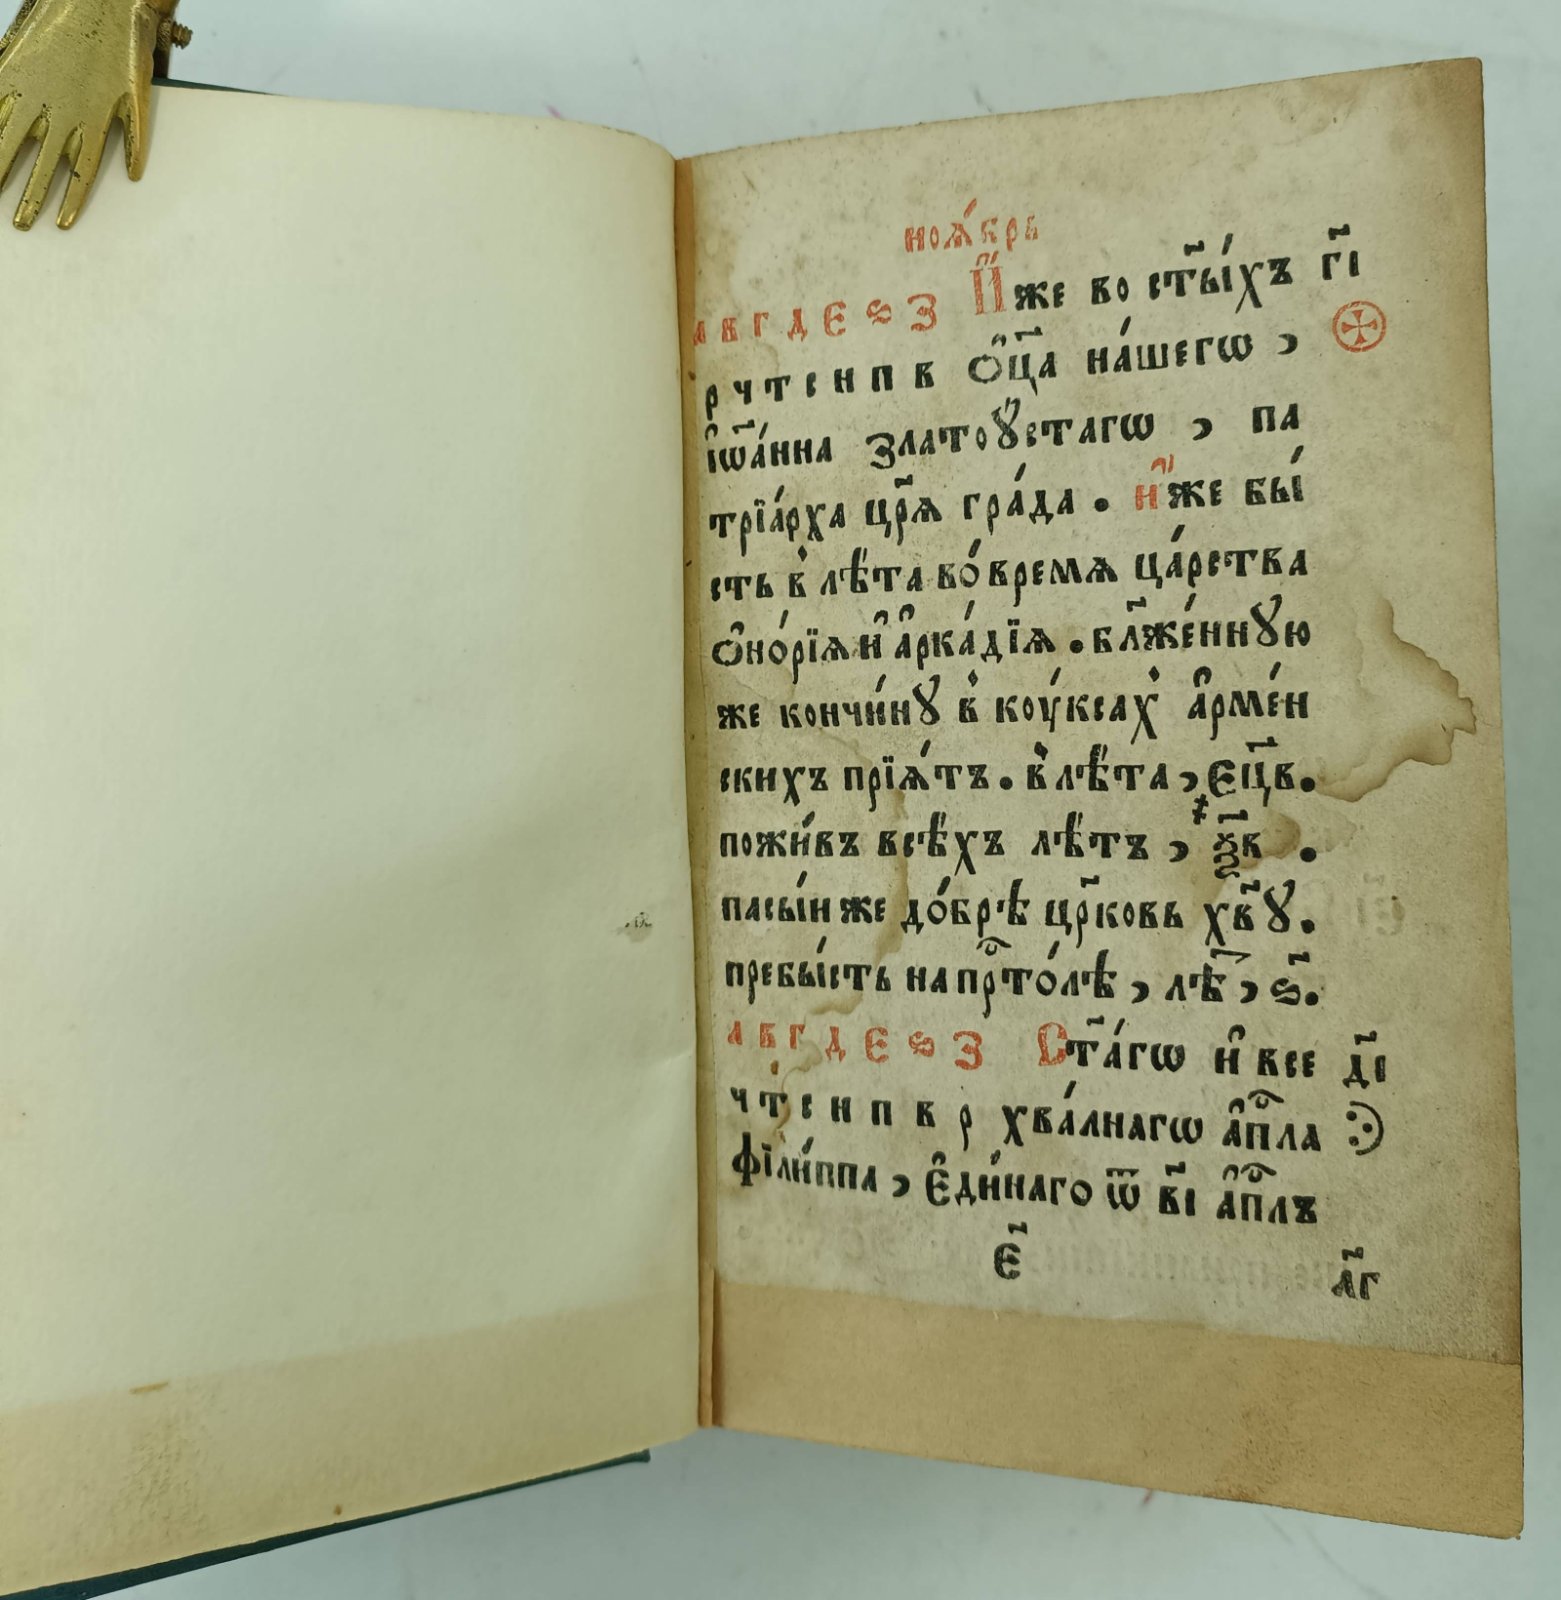 ноѧ́брь
а в г д є ѕ з И҆́же во ст҃ы́хъ г҃і
р ч т с н п в ѻ҆ц҃а на́шегѡ ,
і҆ѡ҃а́нна златоꙋ́стагѡ , па
трїа́рха цр҃ѧ гра́да . и҆́же бы́
сть в лѣ́та во́времѧ ца́рства
ѻ҆но́рїѧ и҆ а҆рка́дїѧ . бл҃же́ннꙋю
же кончи́нꙋ в коу́ксах а҆рме́н
скихъ прїѧ́тъ . в лѣ́та , єц҃в .
пожи́въ всѣ́хъ лѣ́тъ , ѯ҃в .
пасы́й же до́брѣ цр҃ковь хв҃ꙋ .
пребы́сть на прⷭ҇то́лѣ , лѣ҃ , ѕ҃ .
а в г д є ѕ з Ст҃а́гѡ и҆ все д҃і
ч т с н п в р хва́лнагѡ а҆пⷭ҇ла
фїли́ппа , є҆ди́наго ѿ в҃і а҆пⷭ҇лъ
є҃ л҃г